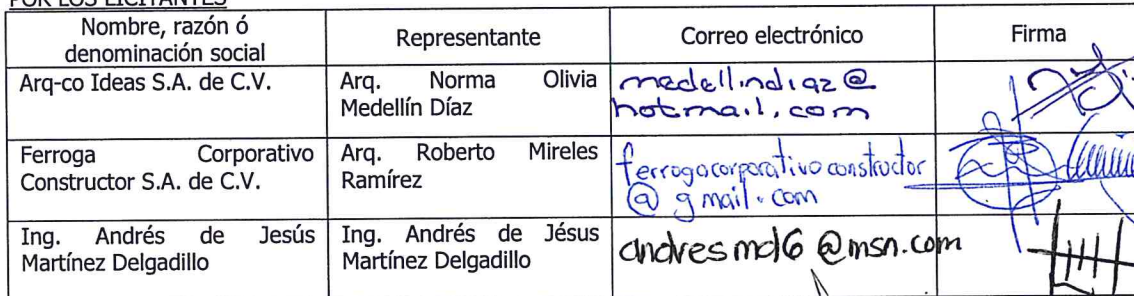 POR LOS LICITANTES
Nombre, razón ó
denominación social
Representante
Correo electrónico
Firma
Arq-co Ideas S.A. de C.V.
Arq. Norma Olivia
Medellín Díaz
medellindiaz@
hotmail.com
Ferroga Corporativo
Constructor S.A. de C.V.
Arq. Roberto Mireles
Ramírez
ferrogacorporativoconstructor
@gmail.com
Ing. Andrés de Jesús
Martínez Delgadillo
Ing. Andrés de Jésus
Martínez Delgadillo
andresmd6@msn.com